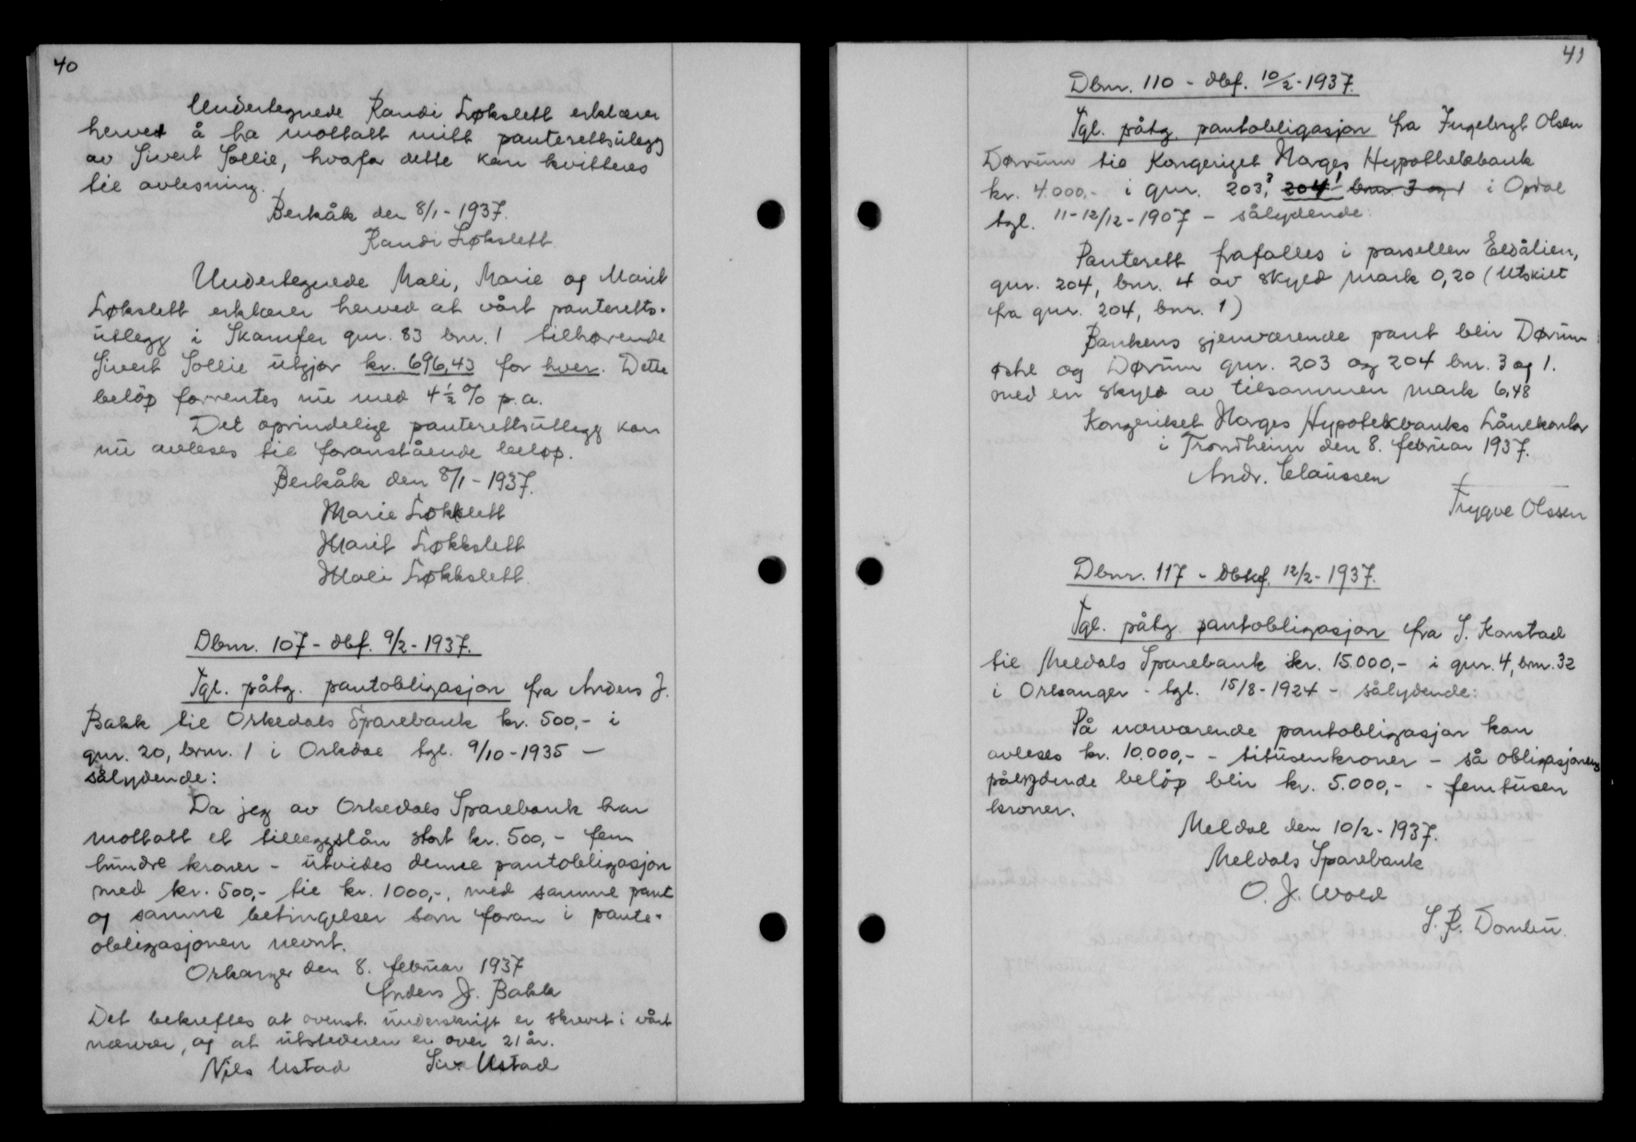 40
Undertegnede Randi Løkslett erklærer
herved å ha mottatt mitt panterettsutlegg
av Sivert Sollie, hvafor dette kan kvitteres
til avlesning.
Berkåk den 8/1 - 1937.
Randi Løkslett
Undertegnede Mali, Marie og Marit
Løkslett erklærer herved at vårt panteretts-
utlegg i Skamfer gnr. 83 bnr. 1 tilhørende
Sivert Sollie utgjør kr. 696,43 for hver. Dette
beløp forrentes nu med 4 1/2 % p.a.
Det oprindelige panterettsutlegg kan
nu avleses til foranstående beløp.
Berkåk den 8/1 - 1937.
Marie Løkslett
Marit Løkkslett
Mali Løkkslett.
Dbnr. 107 - dbf. 9/2 - 1937.
Tgl. påtg. pantobligasjon fra Anders J.
Bakk til Orkedals Sparebank kr. 500,- i
gnr. 20, bnr. 1 i Orkdal tgl. 9/10 - 1935 -
sålydende:
Da jeg av Orkedals Sparebank har
mottatt et tilleggslån stort kr. 500,- fem
hundre kroner - utvides denne pantobligasjon
med kr. 500,- til kr. 1000,-, med samme pant
og samme betingelser som foran i pante-
obligasjonen nevnt.
Orkanger den 8. februar 1937
Anders J. Bakk
Det bekreftes at ovenst. underskrift er skrevet i vårt
nærvær, og at utstederen er over 21 år.
Nils Ustad Siv. Ustad
41
Dbnr. 110 - dbf. 10/2 - 1937.
Tgl. påtg. pantobligasjon fra Ingebrigt Olsen
Dørum til Kongeriget Norges Hypothekbank
kr. 4.000,- i gnr. 203,3 204,1 bnr. 3 og 1 i Opdal
tgl. 11-12/12 - 1907 - sålydende:
Panterett frafalles i parsellen Eldålien,
gnr. 204, bnr. 4 av skyld mark 0,20 (utskilt
fra gnr. 204, bnr. 1)
Bankens gjenværende pant blir Dørum
østre og Dørum gnr. 203 og 204 bnr. 3 og 1.
med en skyld av tilsammen mark 6,48
Kongeriket Norges Hypotekbanks Lånekontor
i Trondheim den 8. februar 1937.
Andr. Claussen
Trygve Olssen
Dbnr. 117 - dbkf. 12/2 - 1937.
Tgl. påtg. pantobligasjon fra S. Konstad
til Meldals Sparebank kr. 15.000,- i gnr. 4, bnr. 32
i Orkanger - tgl. 15/8 - 1924 - sålydende:
På nærværende pantobligasjon kan
avleses kr. 10.000,- - titusenkroner - så obligasjonens
pålydende beløp blir kr. 5.000,- - femtusen
kroner.
Meldal den 10/2 - 1937.
Meldals Sparebank
O. J. Wold
S. P. Domlu.